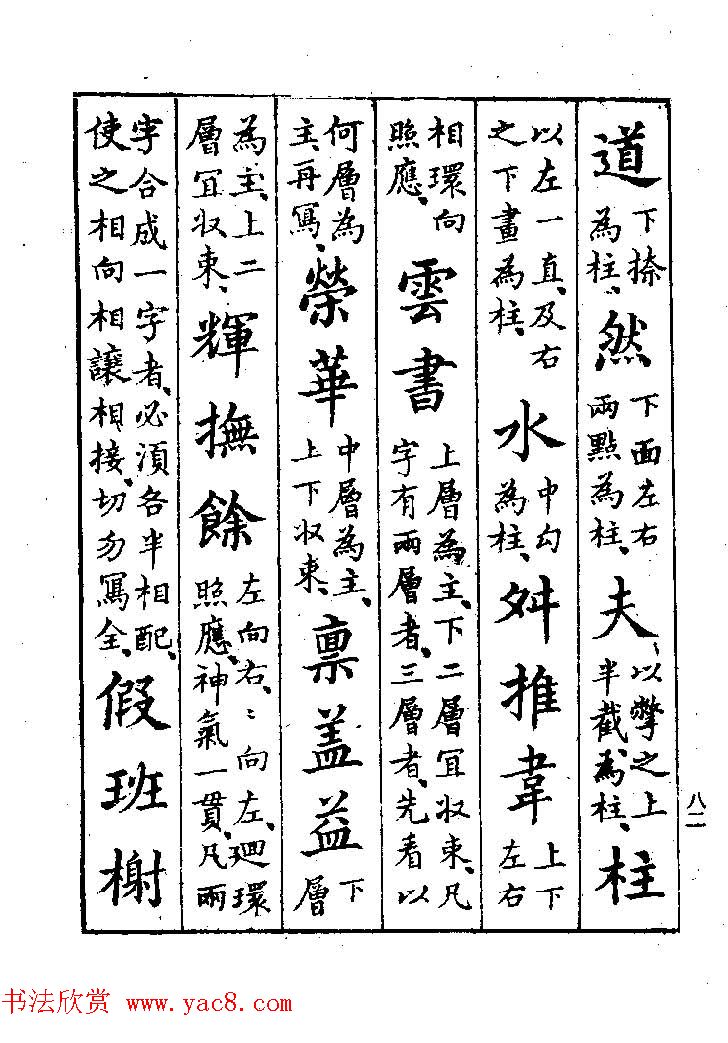 道下捺為柱、然下面左右兩點為柱、夫以撆之上半截為柱、柱
以左一直、及右之下畫為柱、水中勾為柱、舛推韋上下左右
相環向照應、雲書上層為主、下二層冝収束、凡字有兩層者、三層者、先看以
何層為主、再寫、榮華中層為主、上下収束、稟盖益下層
為主、上二層冝収束、輝撫餘左向右、〻向左、迴環照應、神氣一貫、凡兩
字合成一字者、必須各半相配、使之相向相讓相接、切勿寫全、假班榭
八二
书法欣赏 www.yac8.com